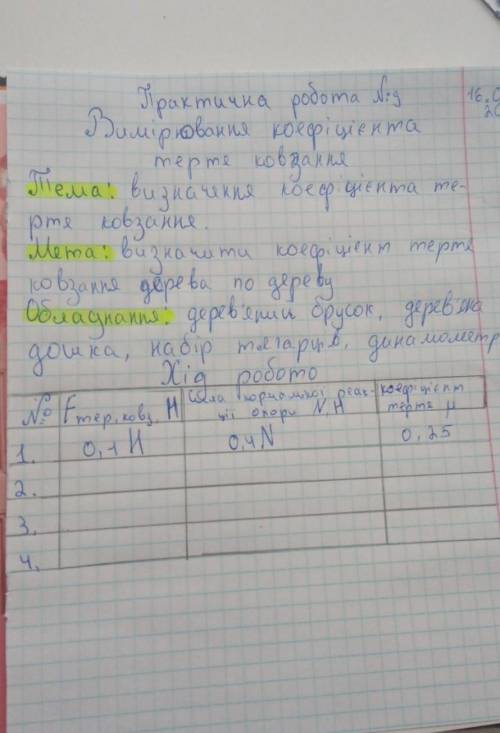 Практична робота №9
16.0
20
Вимірювання коефіцієнта
тертя ковзання
Тема: визначення коефіцієнта те-
ртя ковзання.
Мета: визначити коефіцієнт тертя
ковзання дерева по дереву
Обладнання: дерев'яний брусок, дерев'яна
дошка, набір тягарців, динамометр
Хід роботи
№ Fтер.ковз. Н Сила нормальної реак-
ції опори N, Н коефіцієнт
тертя μ
1. 0,1 Н 0,4 N 0,25
2.
3.
4.